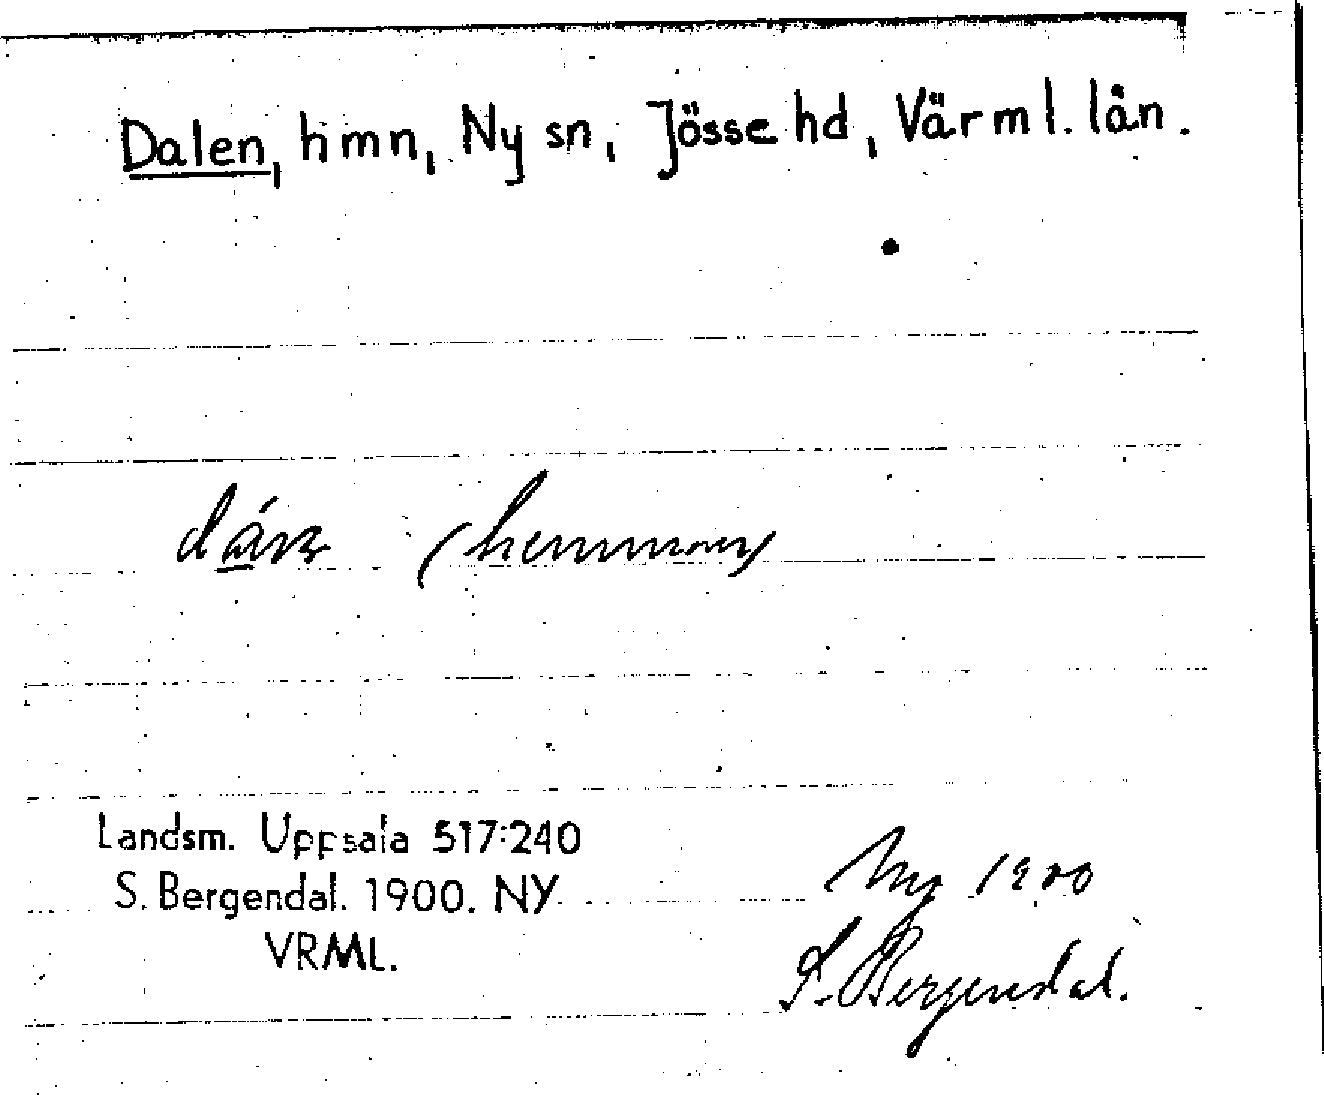 Dalen, hmn, Ny sn, Jösse hd, Värml. län.
(hemman)
Landsm. Uppsala 517:240
S. Bergendal. 1900. NY
VRML.
Ny 1900
S. Bergendal.